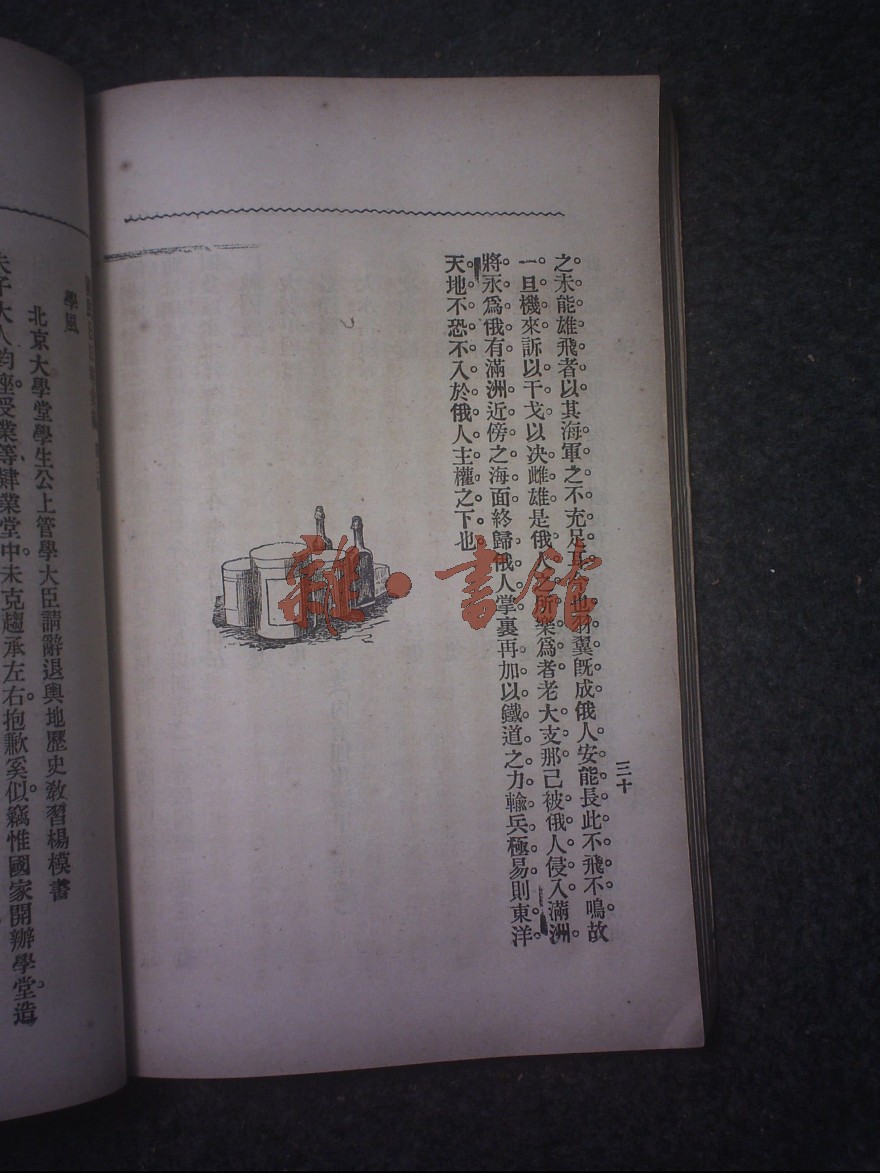 之未能雄飛者以其海軍之不充足其分也羽翼既成俄人安能長此不飛不鳴故
一旦機來訴以干戈以决雌雄是俄人之所樂爲者老大支那已被俄人侵入滿洲
將永爲俄有滿洲近傍之海面終歸俄人掌裏再加以鐵道之力輸兵極易則東洋
天地不恐不入於俄人主權之下也
三十
雜·書館
學風
北京大學堂學生公上管學大臣請辭退輿地歷史敎習楊模書
夫子大人鈞座受業等肄業堂中未克趨承左右抱歉奚似竊惟國家開辦學堂造